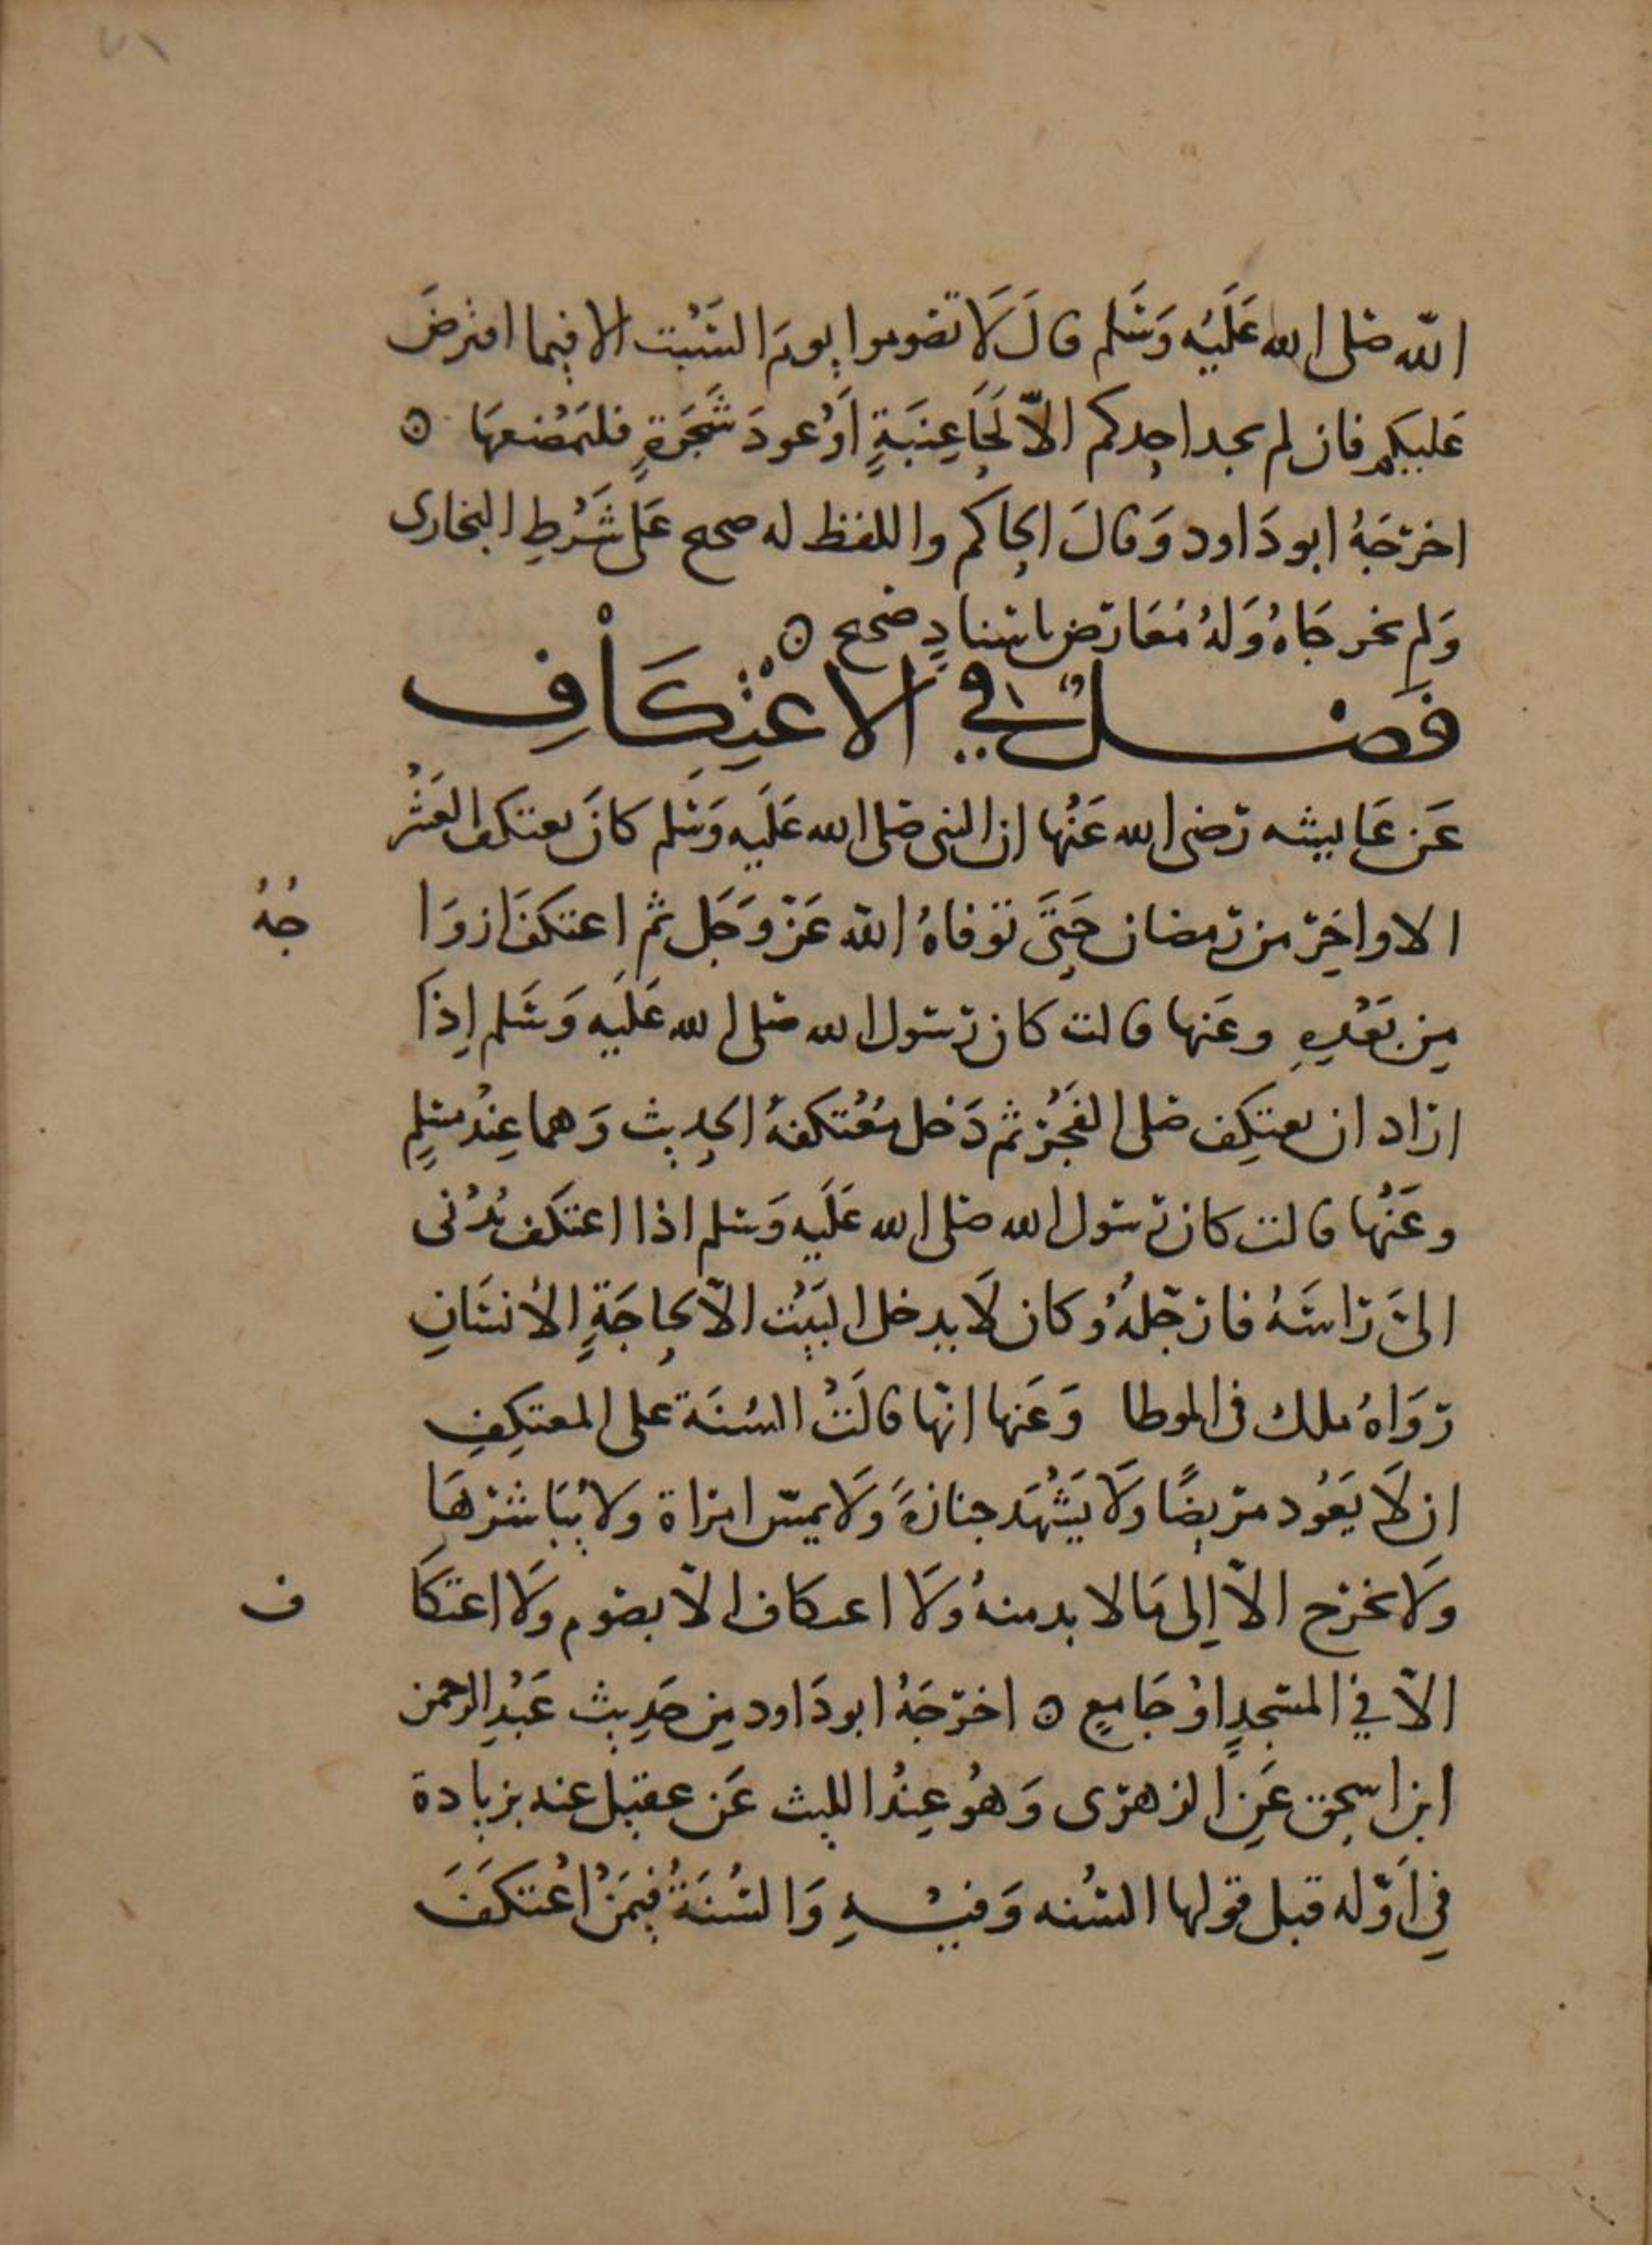 ٧١
الله صلى الله عَلَيْه وَسَلم قالَ لَا تصوموا يومَ السَّبْت الا فيما افترضَ
عَليكم فان لم يجد احدكم الاّ لحَاءِ عِنَبَةٍ اَوْ عودَ شَجَرَةٍ فليَمْضغهَا ۞
اخرَجَهُ ابو دَاود وَقالَ الحاكم واللفظ له صحيح عَلى شَرْطِ البخارى
وَلم يخرجَاهُ وَلهُ مُعَارض باسنادٍ صحيح ۞
فَصْلٌ في الاعْتِكَافِ
عَن عَايشه رَضى الله عَنْها ان النبى صَلى الله عَلَيه وَسَلم كانَ يعتكف العَشْر
الاواخِرَ من رَمضان حَتىَّ توَفاهُ الله عَزّ وَجَل ثم اعتكفَ ازوَا
جُهُ
مِن بَعْدِهِ وعَنها قالت كان رَسُول الله صَلى الله عَلَيه وَسَلم اِذا
ارَاد ان يعتكِف صَلى الفَجْرَ ثم دَخل مُعْتكفهُ الحدِيث وَهما عِندُ مسْلِمٍ
وعَنْها قالت كان رَسُول الله صَلى الله عَلَيه وَسَلم اذا اعتكَف يُدْنى
الىَّ رَاسَهُ فارَجّلهُ وكان لَا يدخل البَيْت الاّ لحاجَةِ الأنسَانِ
رَوَاهُ ملك فى الموطا وَعَنها انّها قالَتْ السُنَة على المعتكِفِ
ان لَا يَعُود مَريضًا ولَا يَشْهَد جنازةً وَلَا يمسّ امرَاة ولا يُبَاشرَهَا
وَلَا يخرج الاّ اِلى مَا لا بد منهُ وَلَا اعتكاف الاّ بصَوم ولَا اعتكَا
ف
الاّ في المسْجدِ اوْ جَامعٍ ۞ اخرَجَهُ ابو دَاود مِن حَدِيث عَبْدِ الرحمن
ابن اسحق عَنِ الزهرَى وَهوُ عِندُ الليث عَن عقيل عنه بزيادة
فِي اَوّله قبل قولها السُنه وَفيْهِ وَالسُنَةُ فِيمَنْ اعْتكَفَ